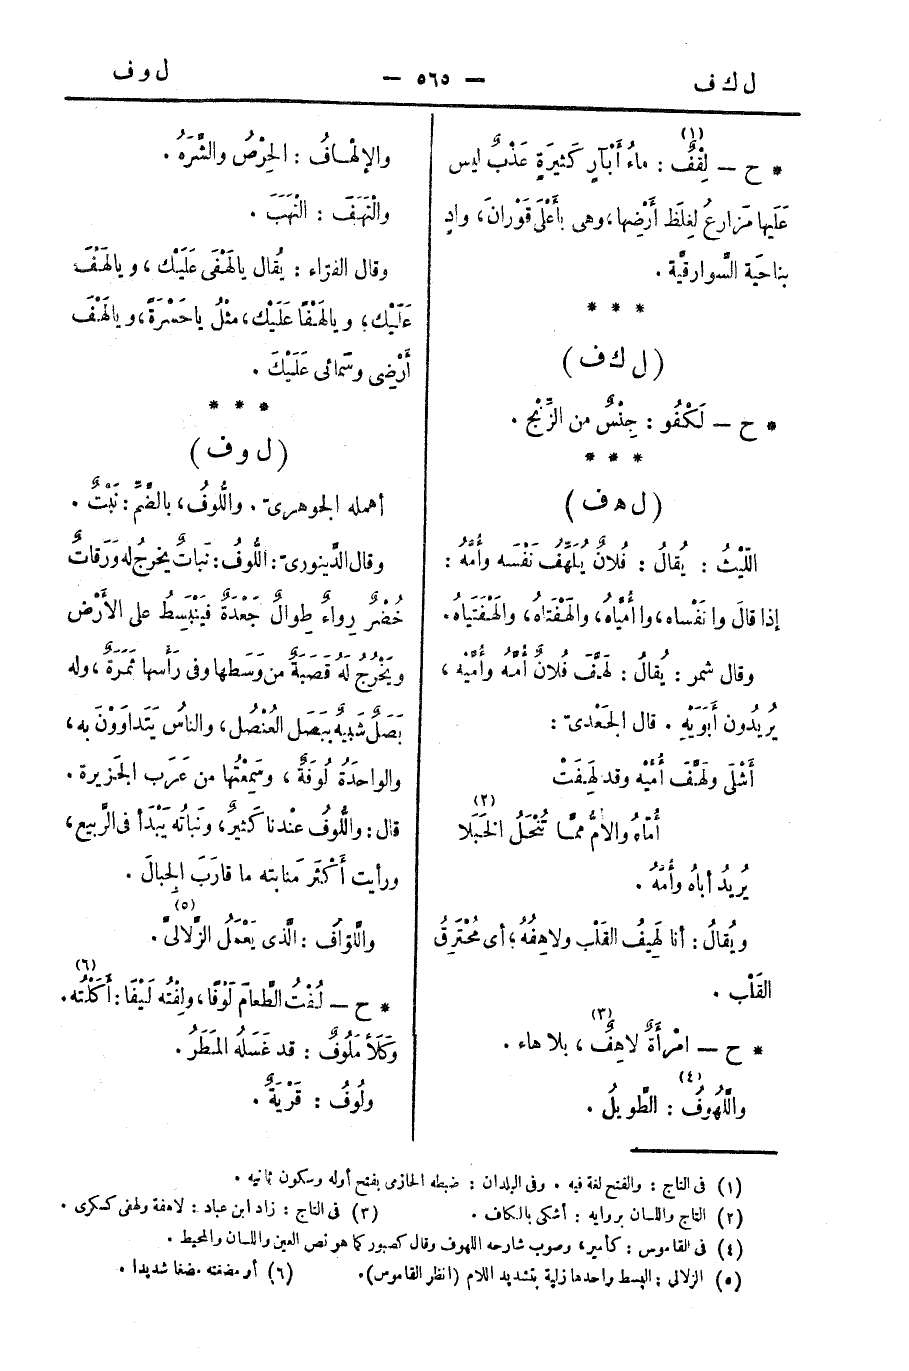 ل ك ف — ٥٦٥ — ل و ف
* ح — لِفْفٌ (١) : ماءُ أَبْآرٍ كَثِيرَةٍ عَذْبٌ ليس
عَلَيها مَزارعُ لِغِلَظ أَرْضِها، وهى بأَعْلَى قَوْرانَ، وادٍ
بناحيَة السَّوارقيَّة .
* * *
( ل ك ف )
* ح — لَكْفُو : جِنْسٌ من الزَّنْج .
* * *
( ل ه ف )
اللَّيْثُ : يُقالُ : فُلانٌ يُلَهِّفُ نَفْسَه وأُمَّه :
إذا قالَ وا نَفْساه، وا أُمِّياه، والَهْفَتاه، والَهْفَتِياه.
وقال شمر : يُقالُ : لَهَّفَ فُلانٌ أُمَّه وأُمَّيْه ،
يُريدُون أَبَوَيْهِ . قال الجَعْدىّ :
أَشْلَى ولَهَّفَ أُمَّيْه وقد لَهِفَتْ
أُمّاه والأُمُّ ممّا تُنْحَلُ الخَبَلا (٢)
يُريدُ أباه وأُمَّه .
ويُقالُ : أنا لَهِيفُ القَلْب ولاهِفُهُ؛ أى مُحْتَرقُ
القَلْب .
* ح — امْرأَةٌ لاهِفٌ (٣) ، بلا هاء .
واللَّهُوفُ (٤) : الطَّويلُ .
والإلْهافُ : الحِرْصُ والشَّرَهُ .
واللَّهَفُ : اللَّهَبُ .
وقال الفرّاء : يُقال يالَهْفَى عَلَيْك ، ويالَهْفَ
عَلَيْك؛ ويالَهْفًا عَلَيْك، مثْلُ ياحَسْرَةً، ويالَهْفَ
أَرْضِى وسَمائى عَلَيْكَ .
* * *
( ل و ف )
أهمله الجوهرىّ . واللُّوفُ، بالضَّمّ : نَبْتٌ .
وقال الدِّينورىّ : اللُّوفُ : نَباتٌ يَخْرجُ له وَرَقاتٌ
خُضْرٌ رِواءٌ طِوالٌ جَعْدَةٌ فيَنْبَسِطُ على الأَرْض
ويَخْرُجُ لَه قَصَبَةٌ من وَسَطها وفى رَأْسها ثَمَرَةٌ ، وله
بَصَلٌ شَبِيهٌ ببَصَل العُنْصُل، والناسُ يَتَداوَوْنَ به،
والواحدَةُ لُوفَةٌ ، وسَمِعْتُها من عَرَب الجَزيرة .
قال : واللُّوفُ عنْدنا كَثيرٌ، ونَباتُه يَبْدَأ فى الرَّبيع،
ورأيت أَكْثَرَ مَنابته ما قارَبَ الجِبالَ .
واللَّوّافُ : الَّذى يَعْمَلُ الزَّلالىَّ (٥) .
* ح — لُفْتُ الطَّعامَ لَوْفًا، ولِفْتُه لَيْفًا : أَكَلْتُه (٦).
وكَلَأٌ مَلُوفٌ : قد غَسَلَه المَطَرُ .
ولُوفُ : قَرْيَةٌ .
(١) فى التاج : والفتح لغة فيه . وفى البلدان : ضبطه الحازمى بفتح أوله وسكون ثانيه .
(٢) التاج واللسان بروايه : أشكى بالكاف . (٣) فى التاج : زاد ابن عباد : لاهفة ولهفى كسكرى .
(٤) فى القاموس : كأمير، وصوب شارحه اللهوف وقال كصبور كما هو نص العين واللسان والمحيط .
(٥) الزلالى : البسط واحدها زلية بتشديد اللام (انظر القاموس). (٦) أو مضغته مضغا شديدا .